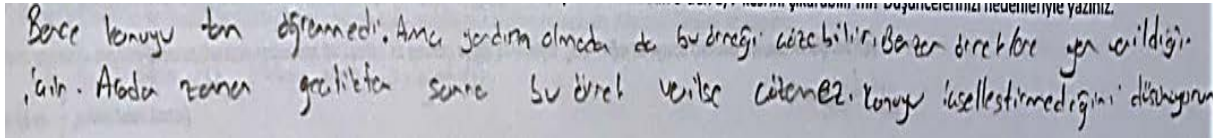 düşüncelerinizi nedenleriyle yazınız.
Bence konuyu tam öğrenmedi. Ama yardım olmada da bu örneği çözebilir. Benzer örneklere yer verildiği
için. Arada zaman geçtikten sonra bu örnek verilse çözemez. Konuyu içselleştirmediğini düşünüyorum